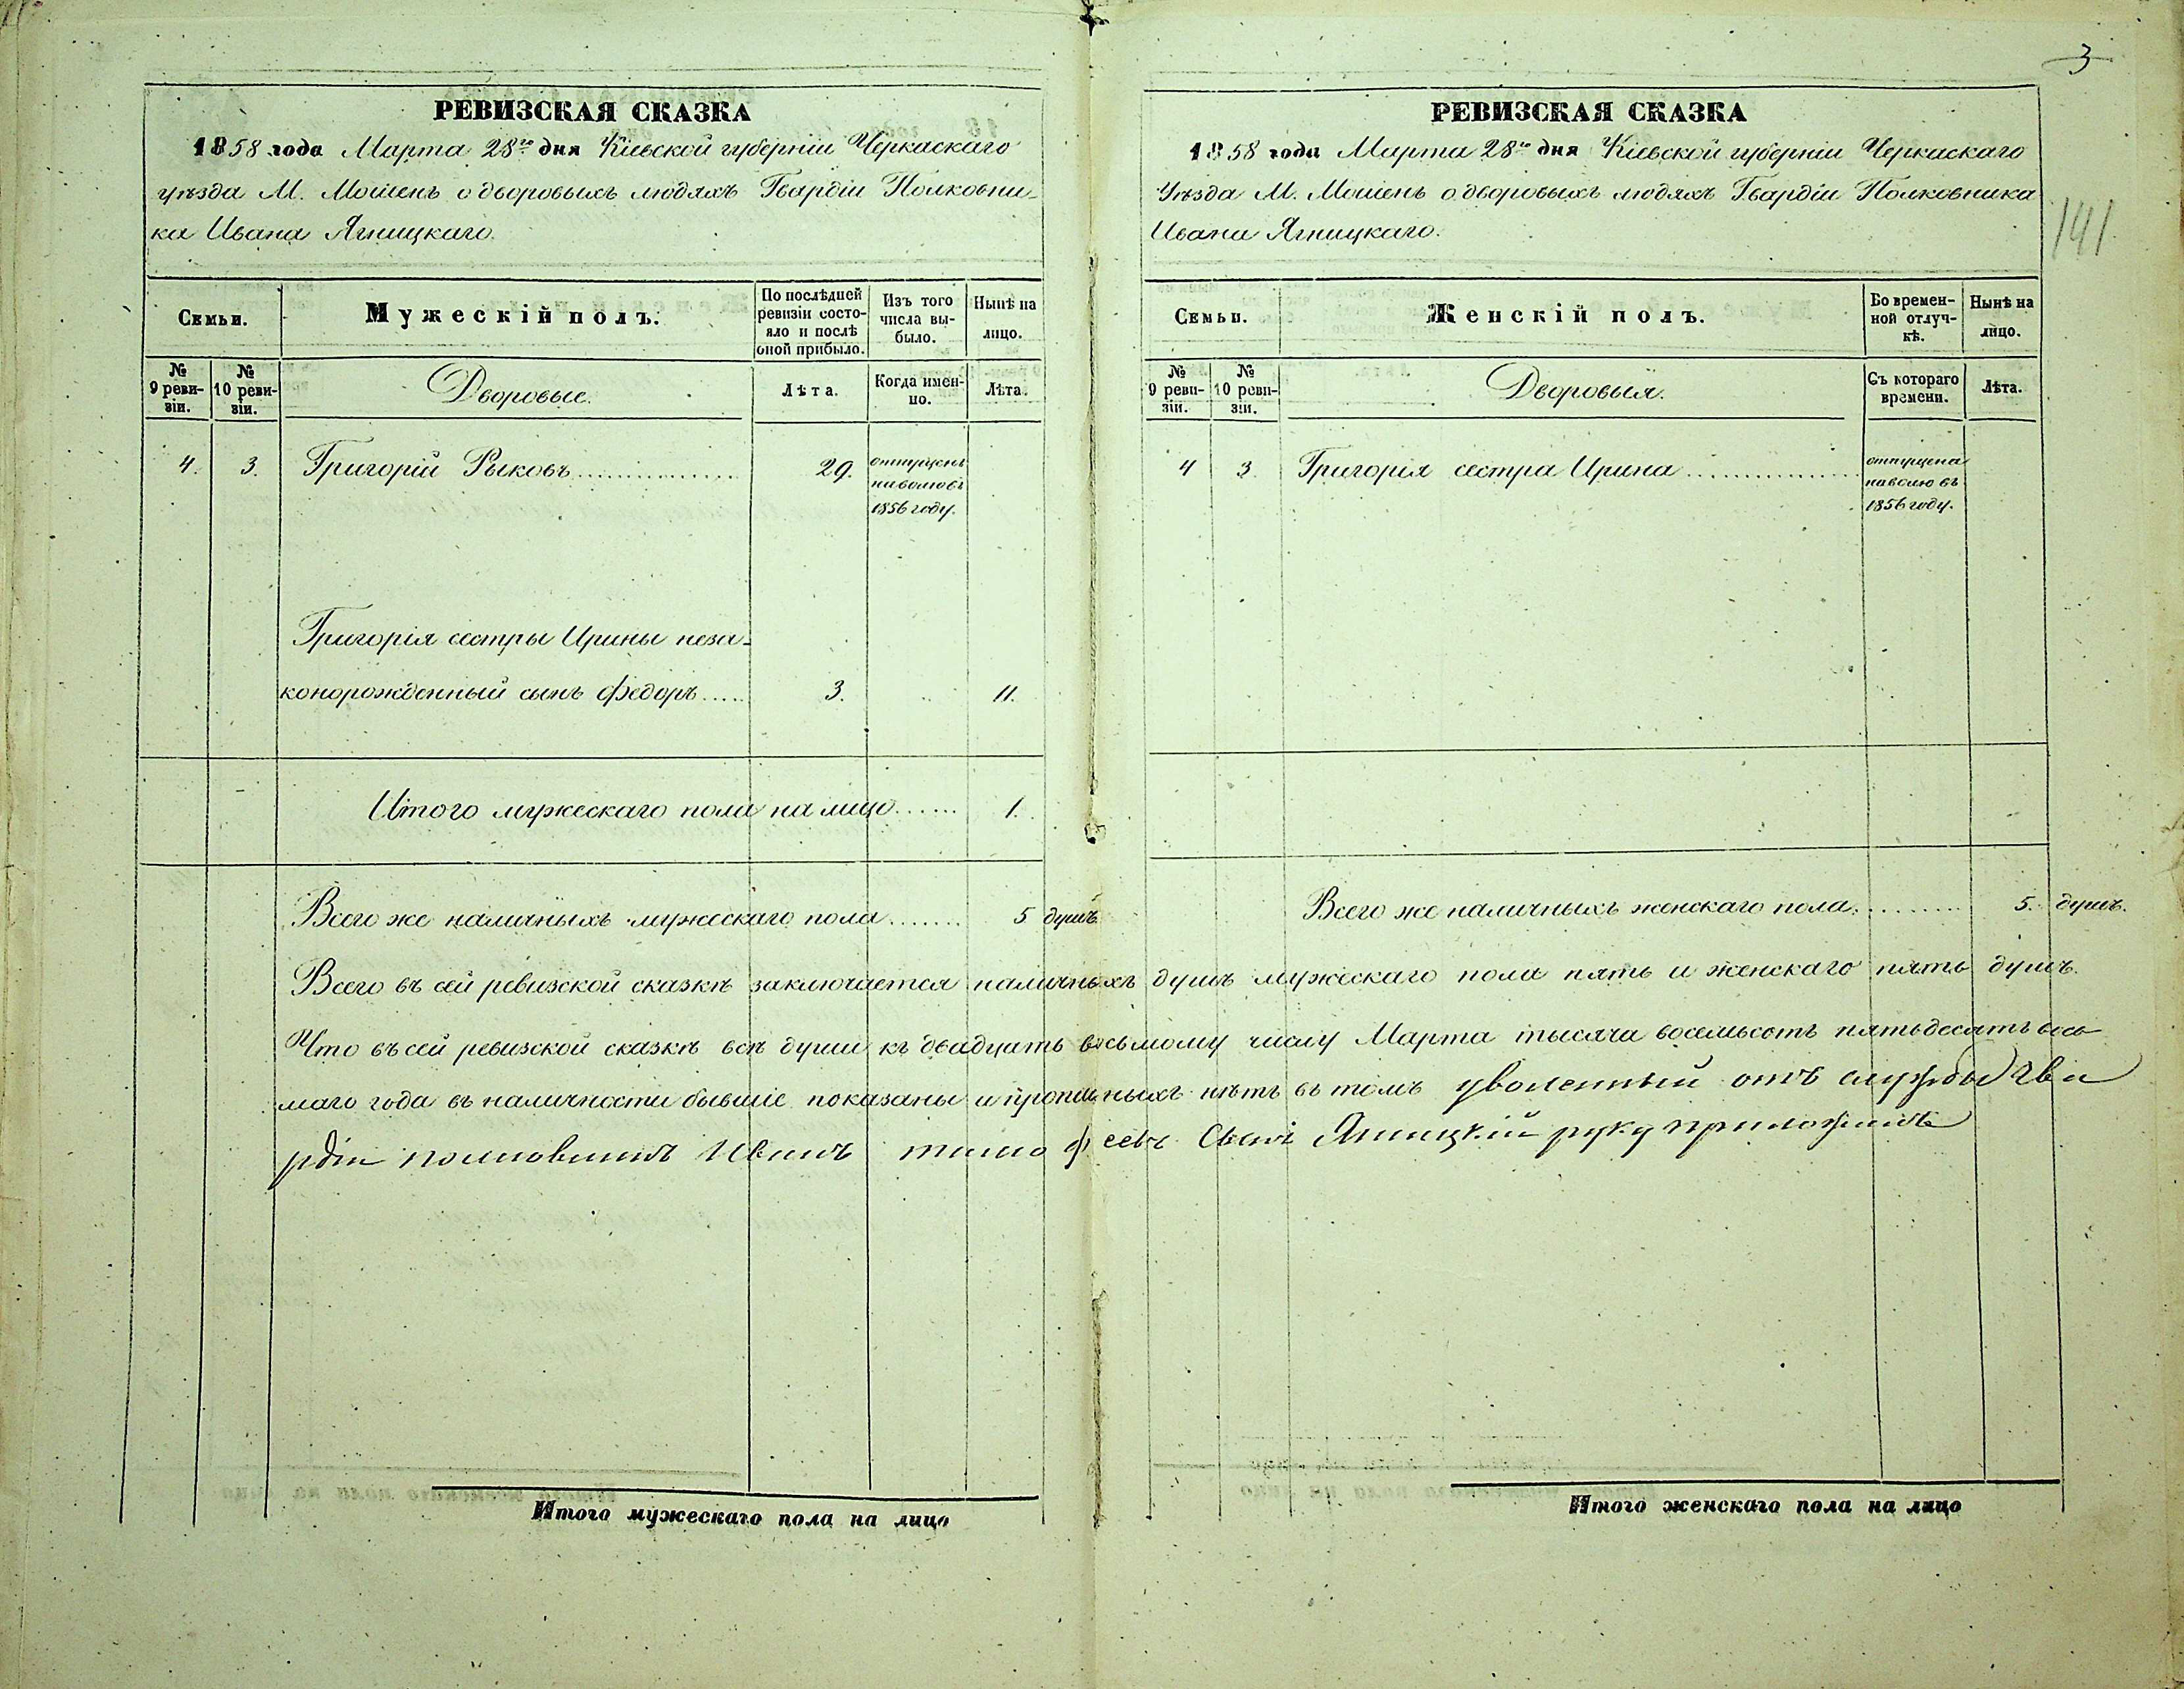 3
141
РЕВИЗСКАЯ СКАЗКА
1858 года Марта 28го дня Кіевской губерніи Черкаскаго
уѣзда М. Мошенъ о дворовыхъ людяхъ Гвардіи Полковни-
ка Ивана Ягницкаго.
Семьи.
Мужескій полъ.
По послѣдней
ревизіи состо-
яло и послѣ
оной прибыло.
Изъ того
числа вы-
было.
Нынѣ на
лицо.
№
9 реви-
зіи.
№
10 реви-
зіи.
Дворовые.
Лѣта.
Когда имен-
но.
Лѣта.
4. 3. Григорій Рыковъ 29. отпущенъ
на волю въ
1856 году.
Григорія сестры Ирины неза-
конорожденный сынъ Федоръ 3. 11.
Итого мужескаго пола на лицо 1.
Всего же наличныхъ мужескаго пола 5 душъ
РЕВИЗСКАЯ СКАЗКА
1858 года Марта 28го дня Кіевской губерніи Черкаскаго
Уѣзда М. Мошенъ о дворовыхъ людяхъ Гвардіи Полковника
Ивана Ягницкаго.
Семьи.
Женскій полъ.
Во времен-
ной отлуч-
кѣ.
Нынѣ на
лицо.
№
9 реви-
зіи.
№
10 реви-
зіи.
Дворовыя.
Съ котораго
времени.
Лѣта.
4 3 Григорія сестра Ирина отпущена
на волю въ
1856 году.
Всего же наличныхъ женскаго пола 5. душъ.
Всего въ сей ревизской сказкѣ заключается наличныхъ душъ мужескаго пола пять и женскаго пять душъ.
Что въ сей ревизской сказкѣ всѣ души къ двадцать восьмому числу Марта тысяча восемьсотъ пятьдесятъ вось-
маго года въ наличности бывшіе показаны и прописныхъ нѣтъ въ томъ уволенный отъ службы гва
рдіи полковникъ Иванъ тимофеевъ Сынъ Ягницкій руку приложилъ
Итого мужескаго пола на лицо
Итого женскаго пола на лицо